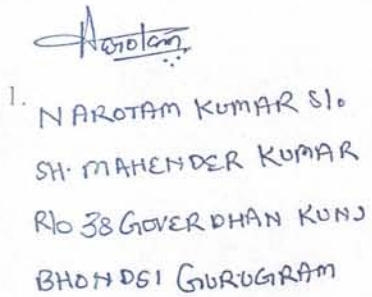 Narotam
1.
NAROTAM KUMAR S/o
SH. MAHENDER KUMAR
R/o 38 GOVERDHAN KUNJ
BHONDSI GURUGRAM